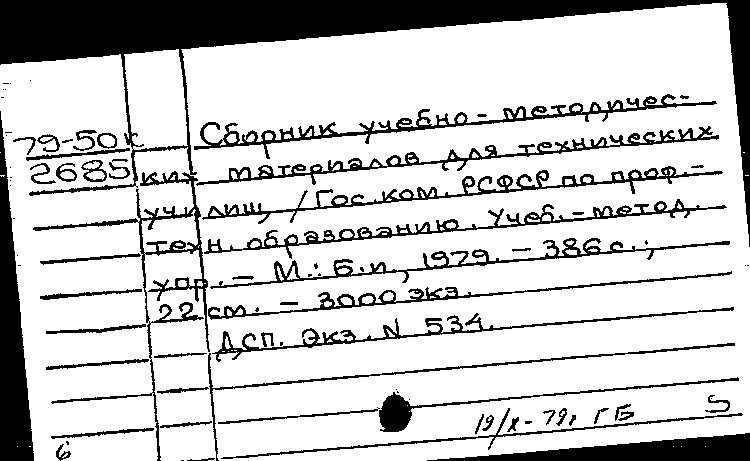 79-50к Сборник учебно-методичес-
2685 ких материалов для технических
училищ / Гос. ком. РСФСР по проф.-
техн. образованию. Учеб.-метод.
упр. - М.: Б.и., 1979. - 386 с.;
22 см. - 3000 экз.
ДСП. Экз. N 534.
19/X-79, ГБ
6